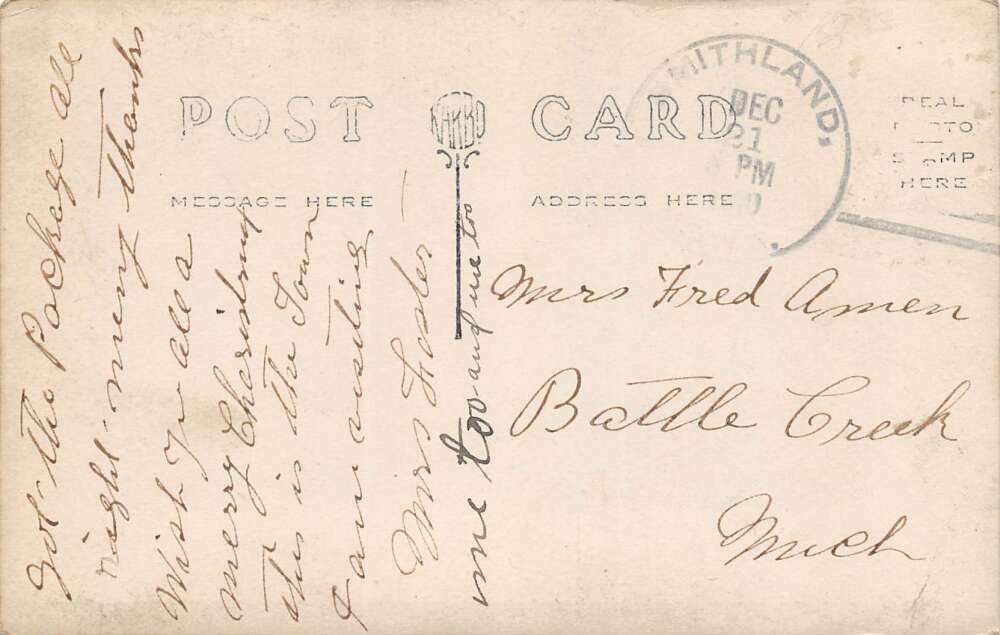 POST CARD
MESSAGE HERE
ADDRESS HERE
REAL
PHOTO
STAMP
HERE
MITHLAND,
DEC
21
PM
Got the Package all
right many thanks
Wish you all a
merry Christmas
this is the Town
I am visiting
Mrs Foster
me too and me too
Mrs Fred Amen
Battle Creek
Mich